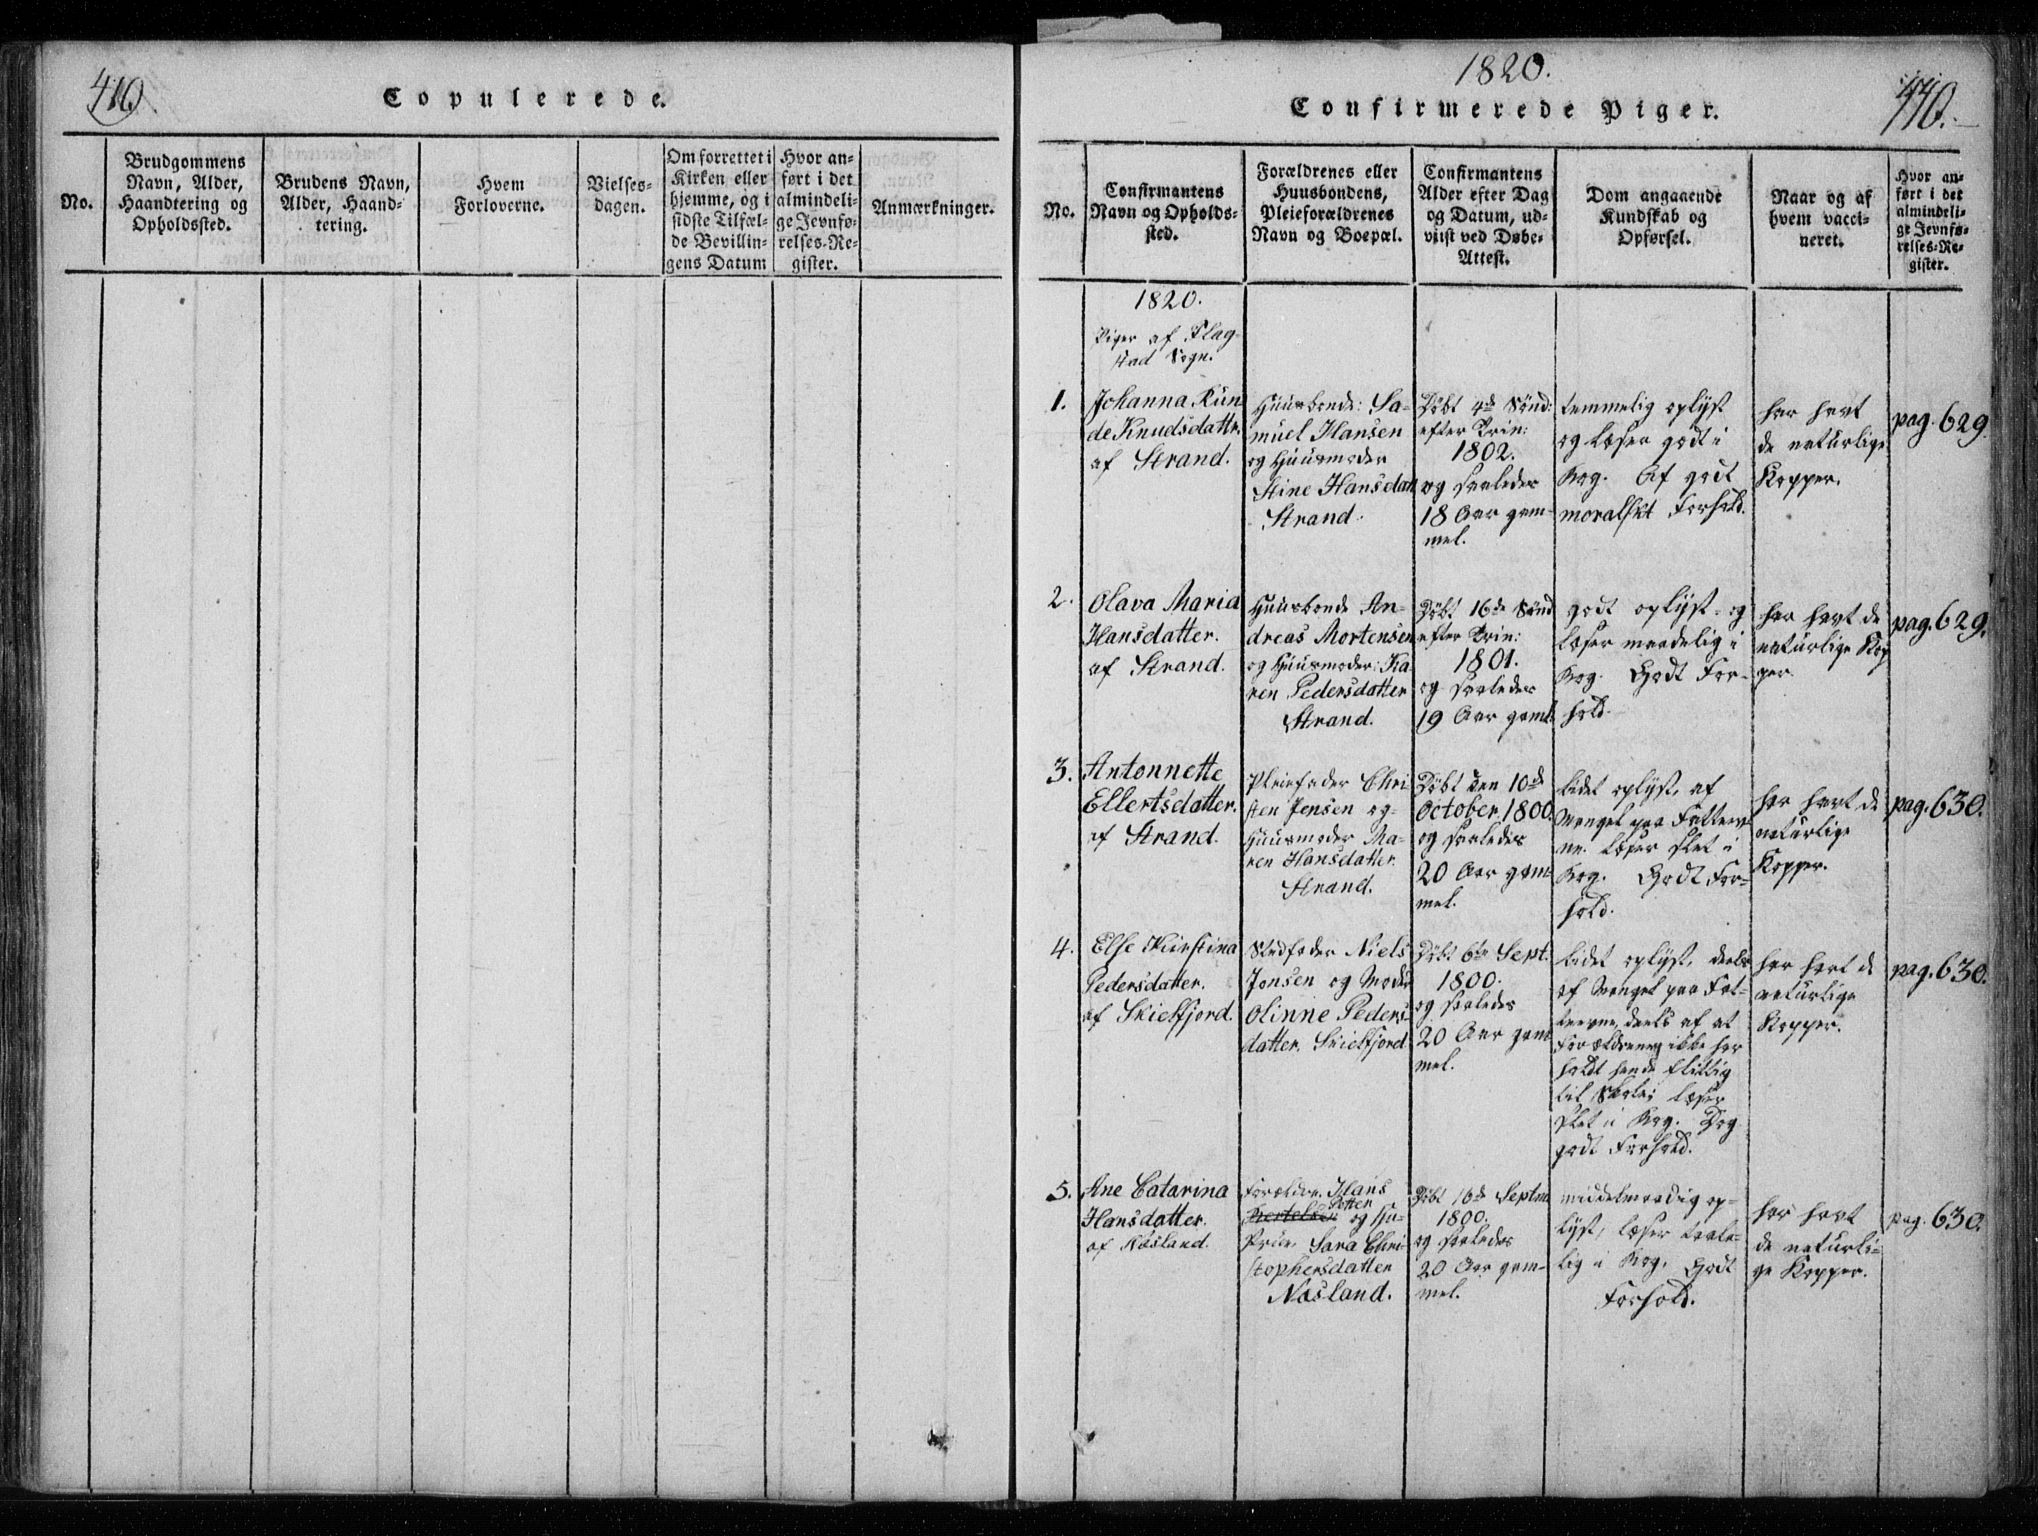 410
Copulerede.
No.
Brudgommens
Navn, Alder,
Haandtering og
Opholdssted.
Brudens Navn,
Alder, Haand-
tering.
Hvem
Forloverne.
Vielses-
dagen.
Om forrettet i
Kirken eller
hjemme, og i
sidste Tilfæl-
de Bevillin-
gens Datum
Hvor an-
ført i det
almindeli-
ge Jevnfø-
relses-Re-
gister.
Anmærkninger.
1820.
Confirmerede Piger.
No.
Confirmantens
Navn og Opholds-
sted.
Forældrenes eller
Huusbondens,
Pleieforældrenes
Navn og Boepæl.
Confirmantens
Alder efter Dag
og Datum, ud-
viist ved Døbe-
Attest.
Dom angaaende
Kundskab og
Opførsel.
Naar og af
hvem vacci-
neret.
Hvor an-
ført i det
almindeli-
ge Jevnfø-
relses-Re-
gister.
1820.
Piger af Flag-
stad Sogn.
1.
Johanna Kun
de Knudsdattr.
af Strand.
Huusbonde: Sa-
muel Hansen
og Huusmoder
Stine Hansdatt
Strand.
Døbt 4de Sønd:
efter Trin:
1802.
og saaledes
18 Aar gam-
mel.
temmelig oplyst
og læser godt i
Bog. Af godt
moralskt Forhold.
har havt
de naturlige
Kopper.
pag. 629.
2.
Olava Maria
Hansdatter.
af Strand.
Huusbonde An-
dreas Mortensen
og Huusmoder: Ka
ren Pedersdatter
Strand.
Døbt 16de Sønd
efter Trin:
1801.
og saaledes
19 Aar gaml.
godt oplyst - og
læser maadelig i
Bog. Godt For-
hold.
har havt de
naturlige Kop
per.
pag. 629.
3.
Antonnette
Ellertsdatter.
af Strand.
Pleiefader Chri
sten Jensen og
Huusmoder Ma-
ren Hansdatter.
Strand.
Døbt den 10de
October 1800.
og saaledes
20 Aar gam-
mel.
lidet oplyst, af
Mangel paa Fatteev-
ne. Læser slet i
Bog. Godt For-
hold.
har havt de
naturlige
Kopper.
pag. 630.
4.
Else Kirstina
Pedersdatter.
af Skielfjord.
Stedfader Niels
Jonsen og Moder
Olinne Peders
datter. Skielfjord
Døbt 6te Sept.
1800.
og saaledes
20 Aar gam
mel.
lidet oplyst, deels
af Mangel paa Fat-
teevne, deels af at
Forældrene ikke har
holdt hende flittig
til Skole; læser
slet i Bog. Dog
godt Forhold.
har havt de
naturlige
Kopper.
pag. 630.
5.
Ane Catarina
Hansdatter.
af Næsland.
Forældre. Hans
Petter
og Hu-
strue Sara Chri-
stophersdatter
Næsland.
Døbt 16de Septm
1800.
og saaledes
20 Aar gam-
mel.
middelmaadig op-
lyst, læser taale-
lig i Bog. Godt
Forhold.
har havt
de naturli-
ge Kopper.
pag. 630.